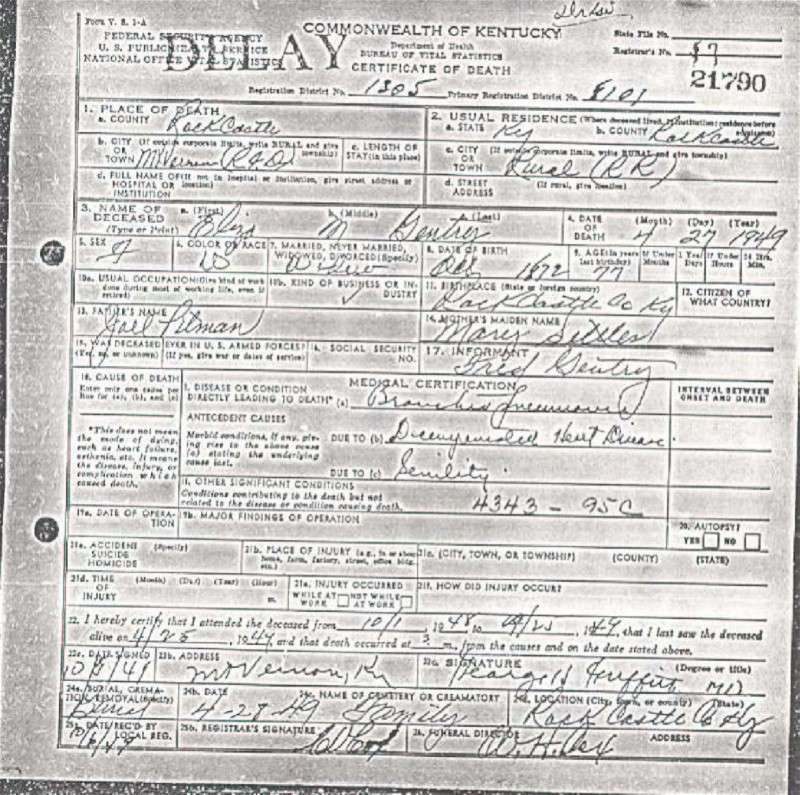 Form V. S. 1-A
COMMONWEALTH OF KENTUCKY
State File No.
FEDERAL SECURITY AGENCY
U. S. PUBLIC HEALTH SERVICE
NATIONAL OFFICE VITAL STATISTICS
DELAY
Department of Health
BUREAU OF VITAL STATISTICS
CERTIFICATE OF DEATH
Registrar's No. 87
21790
Registration District No. 1305 Primary Registration District No. 8101
1. PLACE OF DEATH
a. COUNTY RockCastle
2. USUAL RESIDENCE (Where deceased lived, If institution: residence before admission)
a. STATE Ky b. COUNTY RockCastle
b. CITY (If outside corporate limits, write RURAL and give township)
OR TOWN Mt Vernon (R.F.D.)
c. LENGTH OF STAY (in this place)
c. CITY (If outside corporate limits, write RURAL and give township)
OR TOWN Rural (RR)
d. FULL NAME OF (If not in hospital or institution, give street address or location)
HOSPITAL OR INSTITUTION
d. STREET ADDRESS (If rural, give location)
3. NAME OF DECEASED (Type or Print)
a. (First) b. (Middle) M c. (Last) Gentry
4. DATE OF DEATH (Month) (Day) (Year) 4 27 1949
5. SEX F
6. COLOR OR RACE W
7. MARRIED, NEVER MARRIED, WIDOWED, DIVORCED (Specify)
8. DATE OF BIRTH 1872
9. AGE (In years last birthday) 77
If Under 1 Year Months Days
If Under 24 Hrs. Hours Min.
10a. USUAL OCCUPATION (Give kind of work done during most of working life, even if retired)
10b. KIND OF BUSINESS OR INDUSTRY
11. BIRTHPLACE (State or foreign country) RockCastle Co Ky
12. CITIZEN OF WHAT COUNTRY?
13. FATHER'S NAME Joel Pitman
14. MOTHER'S MAIDEN NAME Mary
15. WAS DECEASED EVER IN U. S. ARMED FORCES?
(Yes, no, or unknown) (If yes, give war or dates of service)
16. SOCIAL SECURITY NO.
17. INFORMANT Fred Gentry
18. CAUSE OF DEATH
Enter only one cause per line for (a), (b), and (c)
MEDICAL CERTIFICATION
INTERVAL BETWEEN ONSET AND DEATH
I. DISEASE OR CONDITION DIRECTLY LEADING TO DEATH* (a) Broncho Pneumonia
*This does not mean the mode of dying, such as heart failure, asthenia, etc. It means the disease, injury, or complication which caused death.
ANTECEDENT CAUSES
Morbid conditions, if any, giving rise to the above cause (a) stating the underlying cause last.
DUE TO (b) Heart Disease
DUE TO (c) Senility
II. OTHER SIGNIFICANT CONDITIONS
Conditions contributing to the death but not related to the disease or condition causing death.
4343 - 95C
19a. DATE OF OPERATION
19b. MAJOR FINDINGS OF OPERATION
20. AUTOPSY? YES NO
21a. ACCIDENT SUICIDE HOMICIDE (Specify)
21b. PLACE OF INJURY (e.g., in or about home, farm, factory, street, office bldg. etc.)
21c. (CITY, TOWN, OR TOWNSHIP) (COUNTY) (STATE)
21d. TIME OF INJURY (Month) (Day) (Year) (Hour) m.
21e. INJURY OCCURRED WHILE AT WORK NOT WHILE AT WORK
21f. HOW DID INJURY OCCUR?
22. I hereby certify that I attended the deceased from 10/1, 1948, to 1949, that I last saw the deceased
alive on 4/25, 1949 and that death occurred at 3 m., from the causes and on the date stated above.
23c. DATE SIGNED
23b. ADDRESS Mt Vernon, Ky
23a. SIGNATURE (Degree or title) George H Griffith MD
24a. BURIAL, CREMATION, REMOVAL (Specify) Burial
24b. DATE 4-29-49
24c. NAME OF CEMETERY OR CREMATORY Family
24d. LOCATION (City, town, or county) (State) Rock Castle Co Ky
25a. DATE REC'D BY LOCAL REG.
25b. REGISTRAR'S SIGNATURE
26. FUNERAL DIRECTOR W.H. Cox
ADDRESS